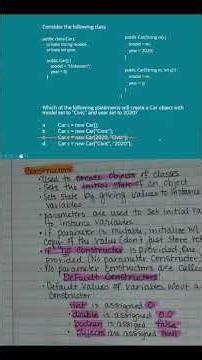 Consider the following class
public class Car {
private String model;
private int year;
public Car() {
model = "Unknown";
year = 0;
}
public Car(String m) {
model = m;
year = 2020;
}
public Car(String m, int y) {
model = m;
year = y;
}
Which of the following statements will create a Car object with
model set to "Civic" and year set to 2020?
a Car c = new Car();
b Car c = new Car("Civic");
c Car c = new Car(2020, "Civic");
d Car c = new Car("Civic", "2020");
Constructors
• Used to create objects of classes
• Sets the initial state of an object
• Sets state by giving values to instance
variables
• parameters are used to set initial
to instance variables
• if parameter is mutable, initialize w/
copy of the value (don't just store
• if no constructor is provided, one
provided (No parameter constructor)
• No parameter constructors are called
Default Constructors
• Default values of variables w/out a
Constructor:
int is assigned 0
double is assigned 0.0
boolean is assigned false
objects are assigned null